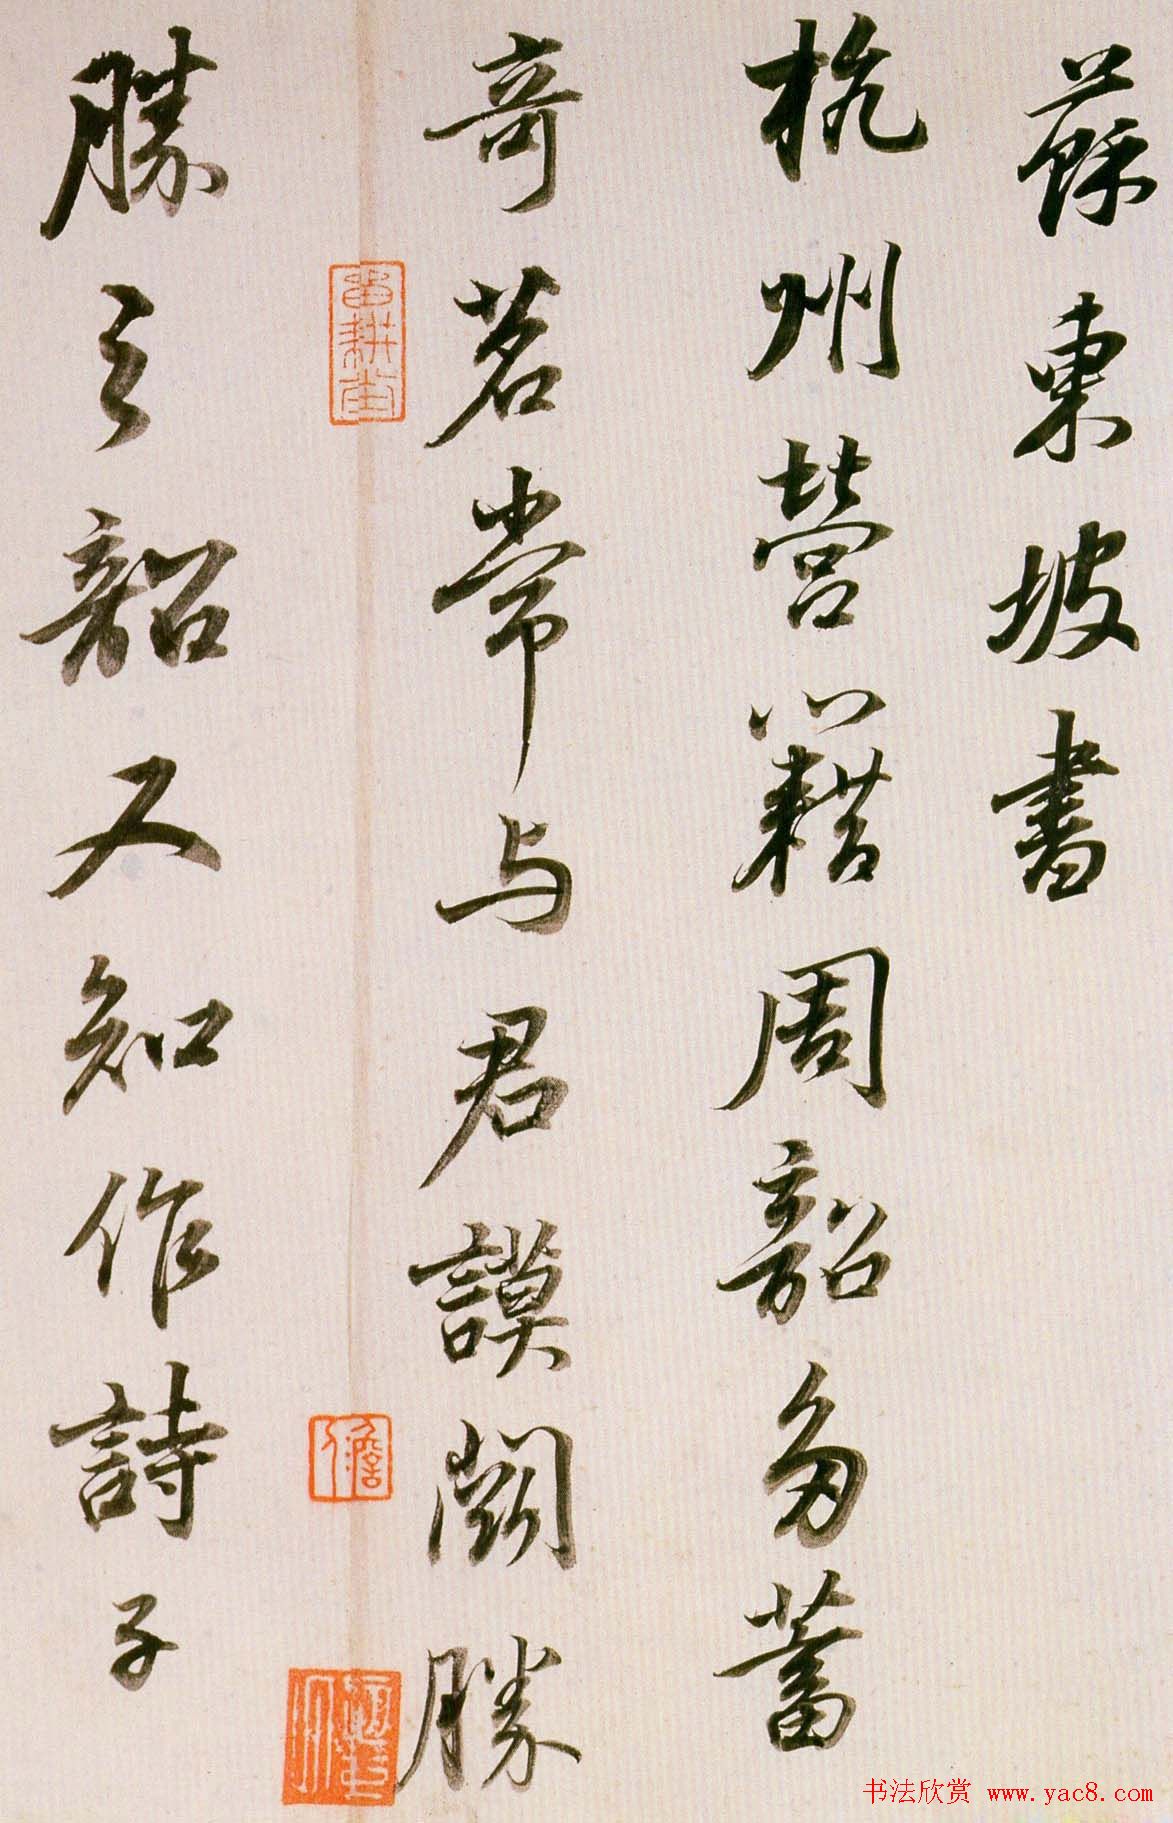 蘇東坡書
杭州營籍周韶多蓄
奇茗常与君謨鬪勝
勝之韶又知作詩子
留耕堂
书法欣赏 www.yac8.com